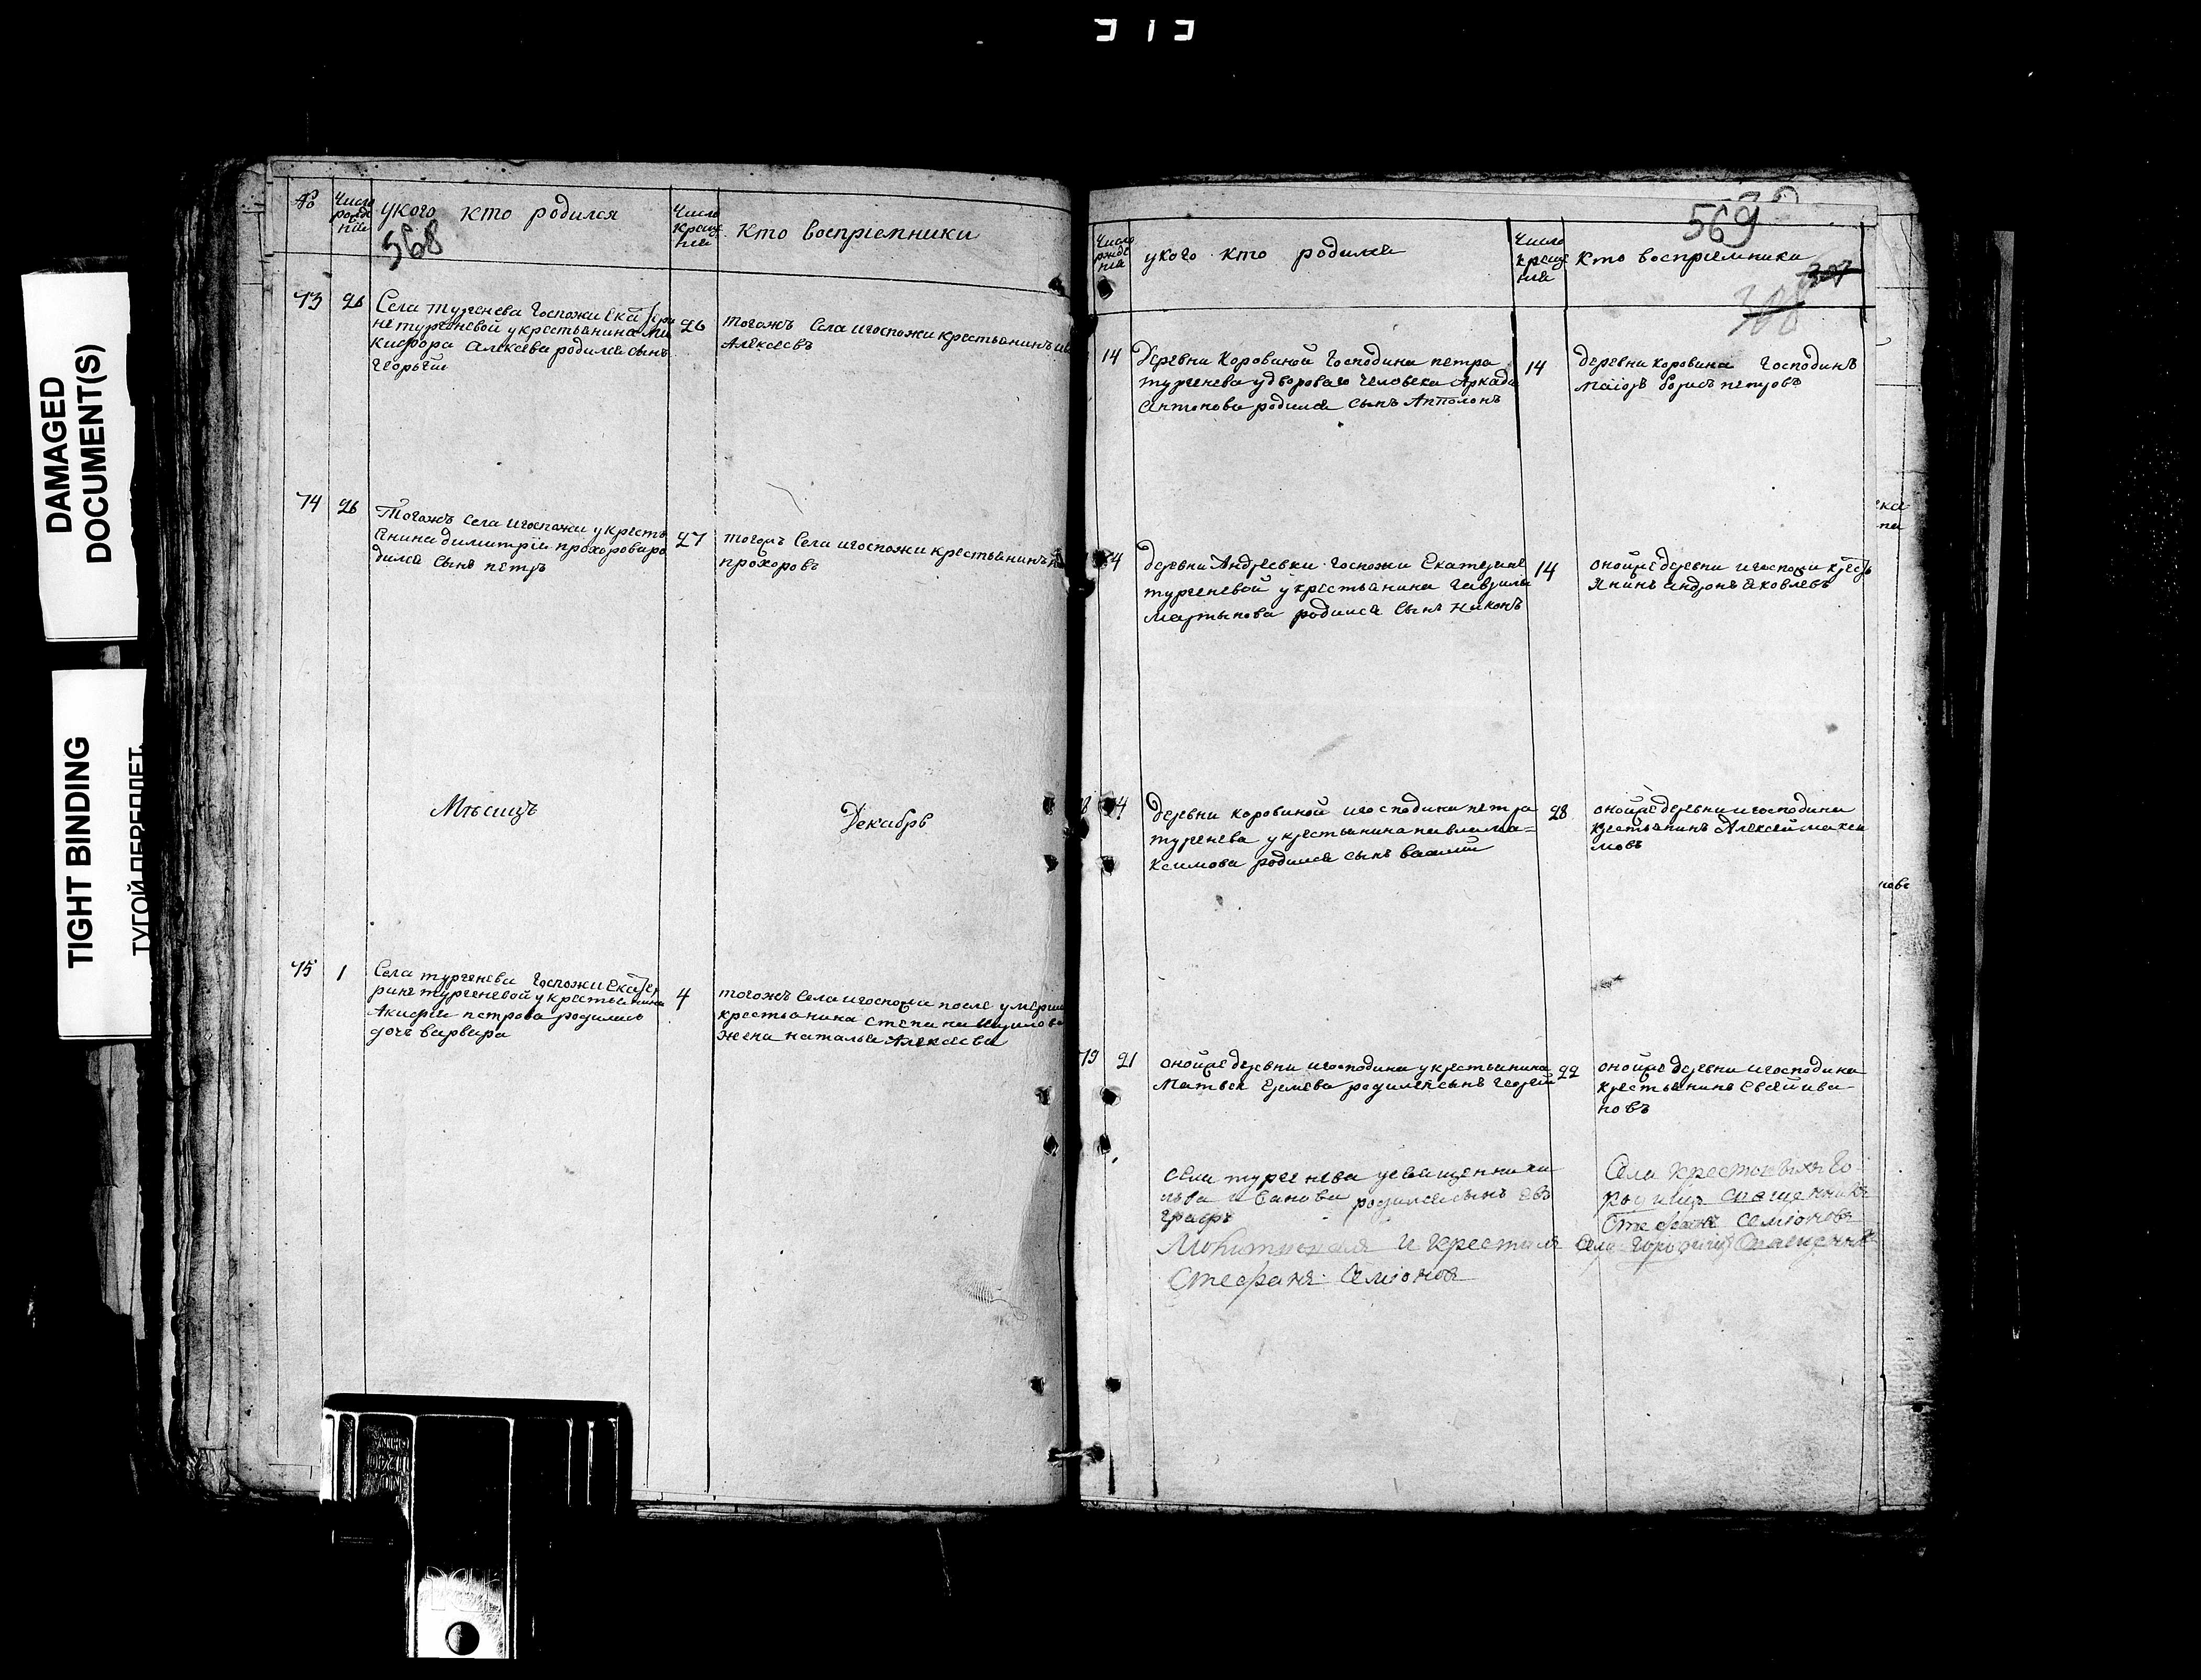 313
DAMAGED
DOCUMENT(S)
TIGHT BINDING
ТУГОЙ ПЕРЕПЛЕТ.
№
Число рожде нія
укого кто родился
Число креще нія
Кто воспріемники
568
73 26
Села тургенева Госпожи Екатери
не тургеневой укрестьянина Ни
кифора Алексева родился сынъ
Георьгии
26
тогожъ Села игоспожи крестьянинъ
Алексеевъ
74 26
Тогожъ Села игоспожи укресть
янина димитрія прохорова ро
дился Сынъ петръ
27
тогожъ Села игоспожи крестьянинъ
прохоровъ
Мѣсяцъ Декабрь
75 1
Села тургенева Госпожи Екатер
рине тургеневой укрестьянина
петрова родилась
дочь варвара
4
тогожъ Села игоспожи после умерша
крестьянина степана
жена наталья Алексеева
569
Число рожде нія
укого кто родился
Число креще нія
Кто воспріемники
307
308
14
Деревни Коровиной Господина петра
тургенева удворового человека Аркадя
Антонова родился Сынъ Апполонъ
14
деревни коровина Господинъ
маіоръ борисъ петровъ
4
деревни Андреевки Госпожи Екатерине
тургеневой укрестьянина Гаврилы
Мартынова родился Сынъ Никонъ
14
онойже деревни игоспожи кресть
янинъ андронъ яковлевъ
4
деревни коровиной игосподина петра
тургенева укрестьянина павла ма=
ксимова родился сынъ василии
28
онойже деревни игосподина
крестьянинъ Алексей макси
мовъ
79 21
онойже деревни игосподина укрестьянина
Матвея родился сынъ георгии
22
онойже деревни игосподина
крестьянинъ Евсей ива
новъ
села тургенева усвященника
льва Иванова родился сынъ Ев
графъ
Села Крестовыхъ Го
родищъ священникъ
Стефанъ Семіоновъ
Молитвовалъ и крестилъ Села Городищъ Священникъ
Стефанъ Семіоновъ